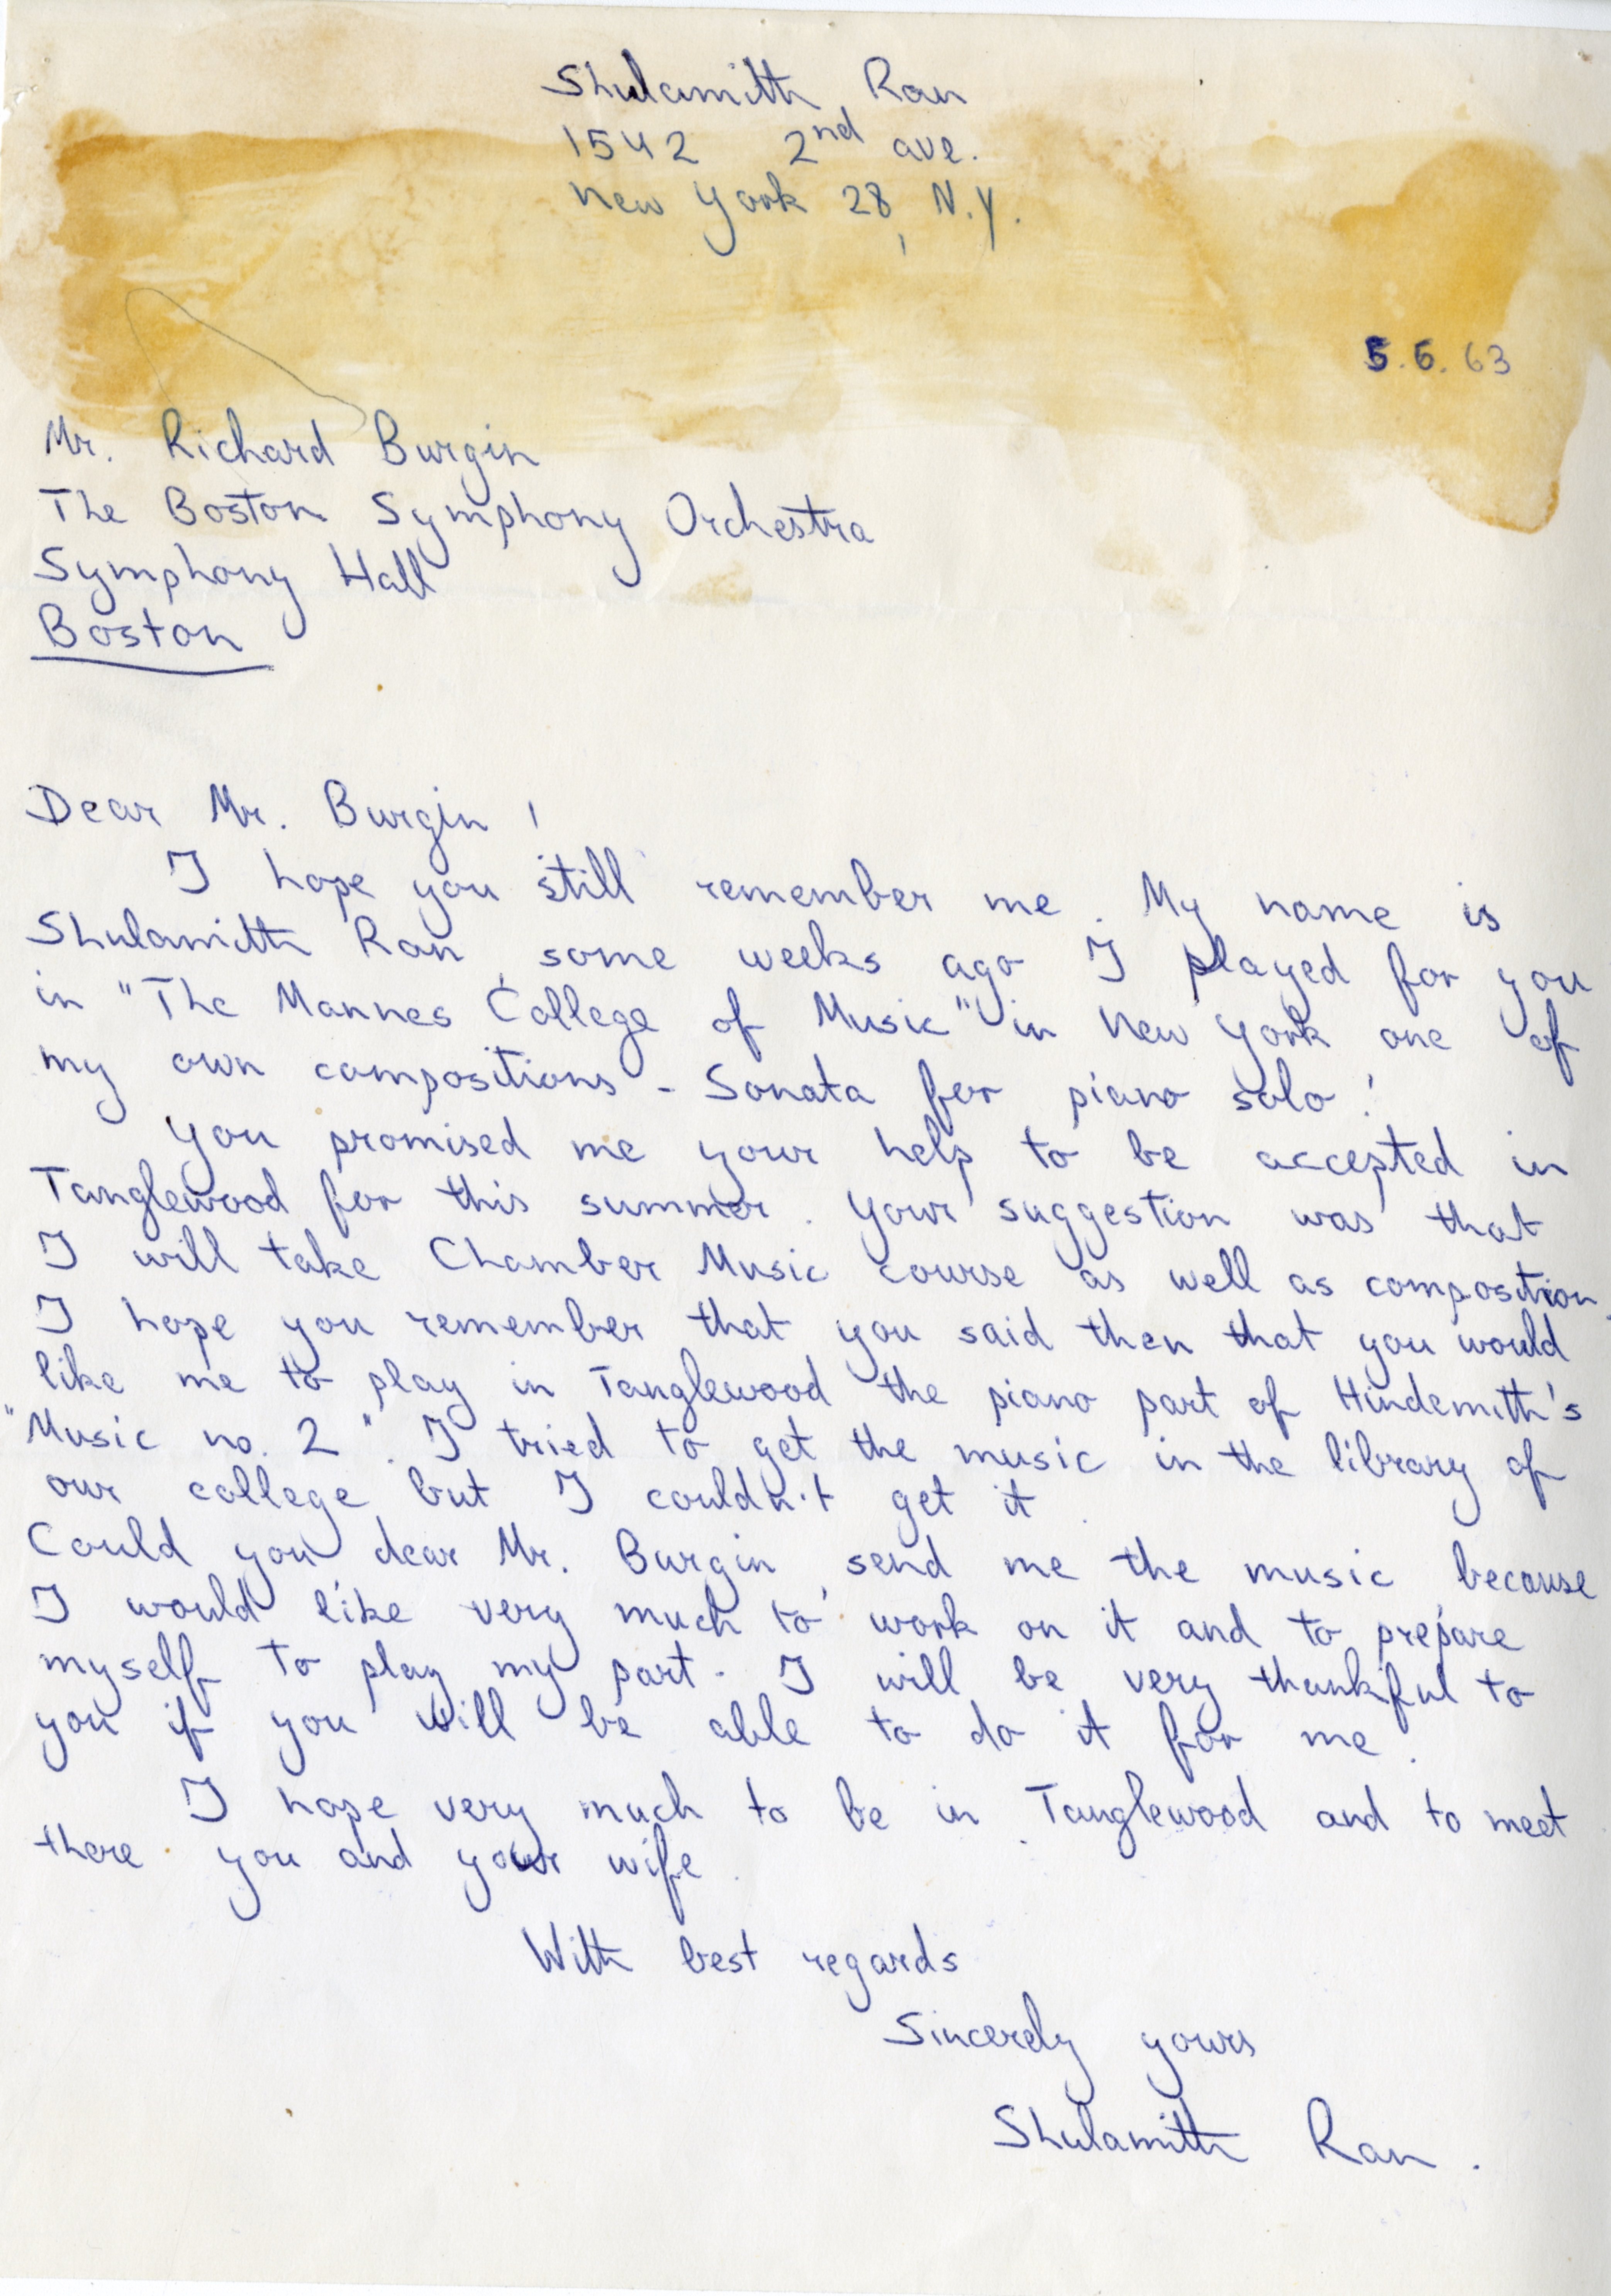 Shulamith Ran
1542 2nd ave.
New York 28, N.Y.
5.6.63
Mr. Richard Burgin
The Boston Symphony Orchestra
Symphony Hall
Boston
Dear Mr. Burgin !
I hope you still remember me. My name is
Shulamith Ran, some weeks ago I played for you
in "The Mannes College of Music" in New York one of
my own compositions - Sonata for piano solo !
You promised me your help to be accepted in
Tanglewood for this summer. Your suggestion was that
I will take Chamber Music course as well as composition.
I hope you remember that you said then that you would
like me to play in Tanglewood the piano part of Hindemith's
"Music no. 2". I tried to get the music in the library of
our college but I couldn't get it.
Could you dear Mr. Burgin, send me the music because
I would like very much to work on it and to prepare
myself to play my part. I will be very thankful to
you if you will be able to do it for me.
I hope very much to be in Tanglewood and to meet
there you and your wife.
With best regards
Sincerely yours
Shulamith Ran.